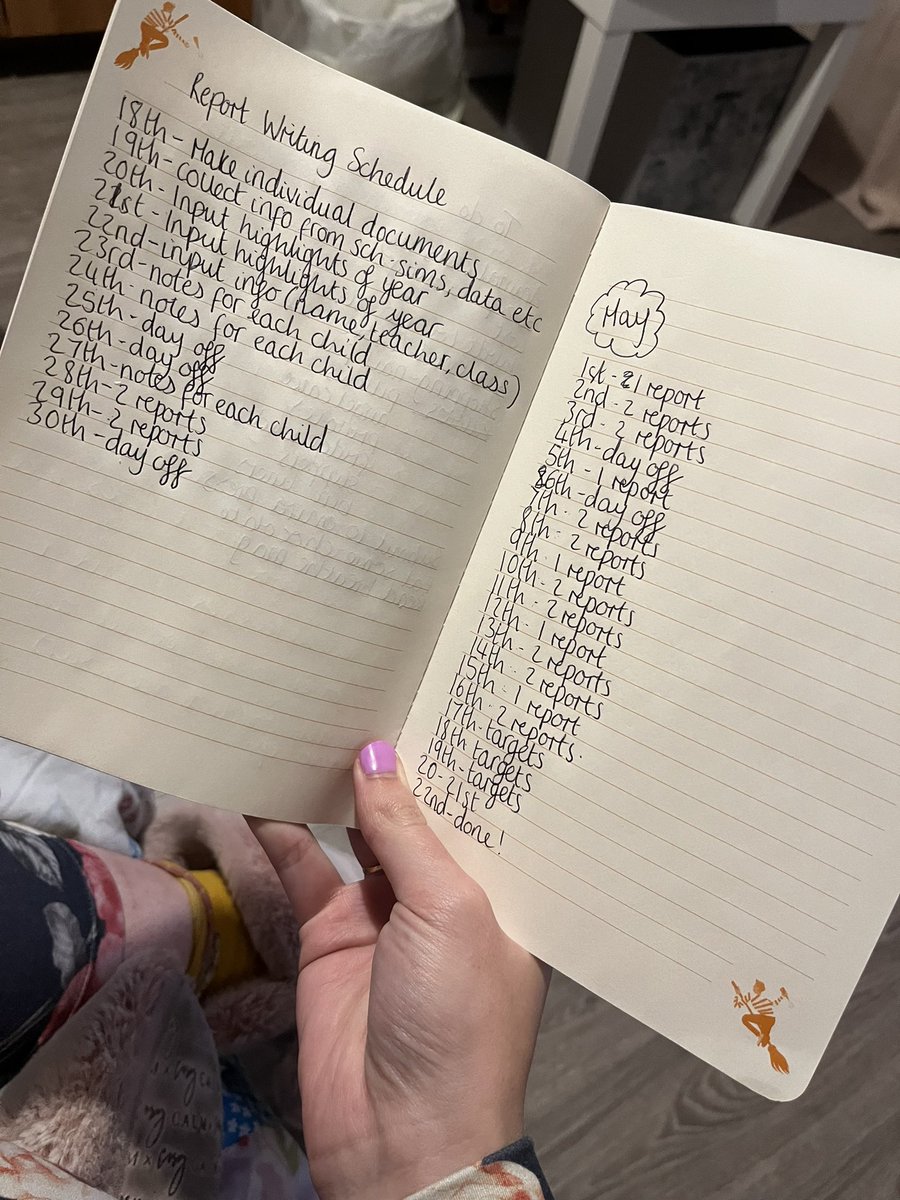 Report Writing Schedule
18th - Make individual documents
19th - collect info from sch - sims, data etc
20th - Input highlights of year
21st - Input highlights of year
22nd - input info (name, teacher, class)
23rd - notes for each child
24th - notes for each child
25th - day off
26th - day off
27th - notes for each child
28th - 2 reports
29th - 2 reports
30th - day off
May
1st - 1 report
2nd - 2 reports
3rd - 2 reports
4th - day off
5th - 1 report
6th - day off
7th - 2 reports
8th - 2 reports
9th - 1 report
10th - 2 reports
11th - 2 reports
12th - 1 report
13th - 2 reports
14th - 2 reports
15th - 1 report
16th - 2 reports.
17th - targets
18th targets
19th - targets
20 - 21st
22nd - done!